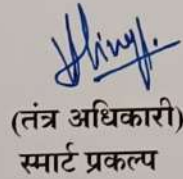 (तंत्र अधिकारी)
स्मार्ट प्रकल्प